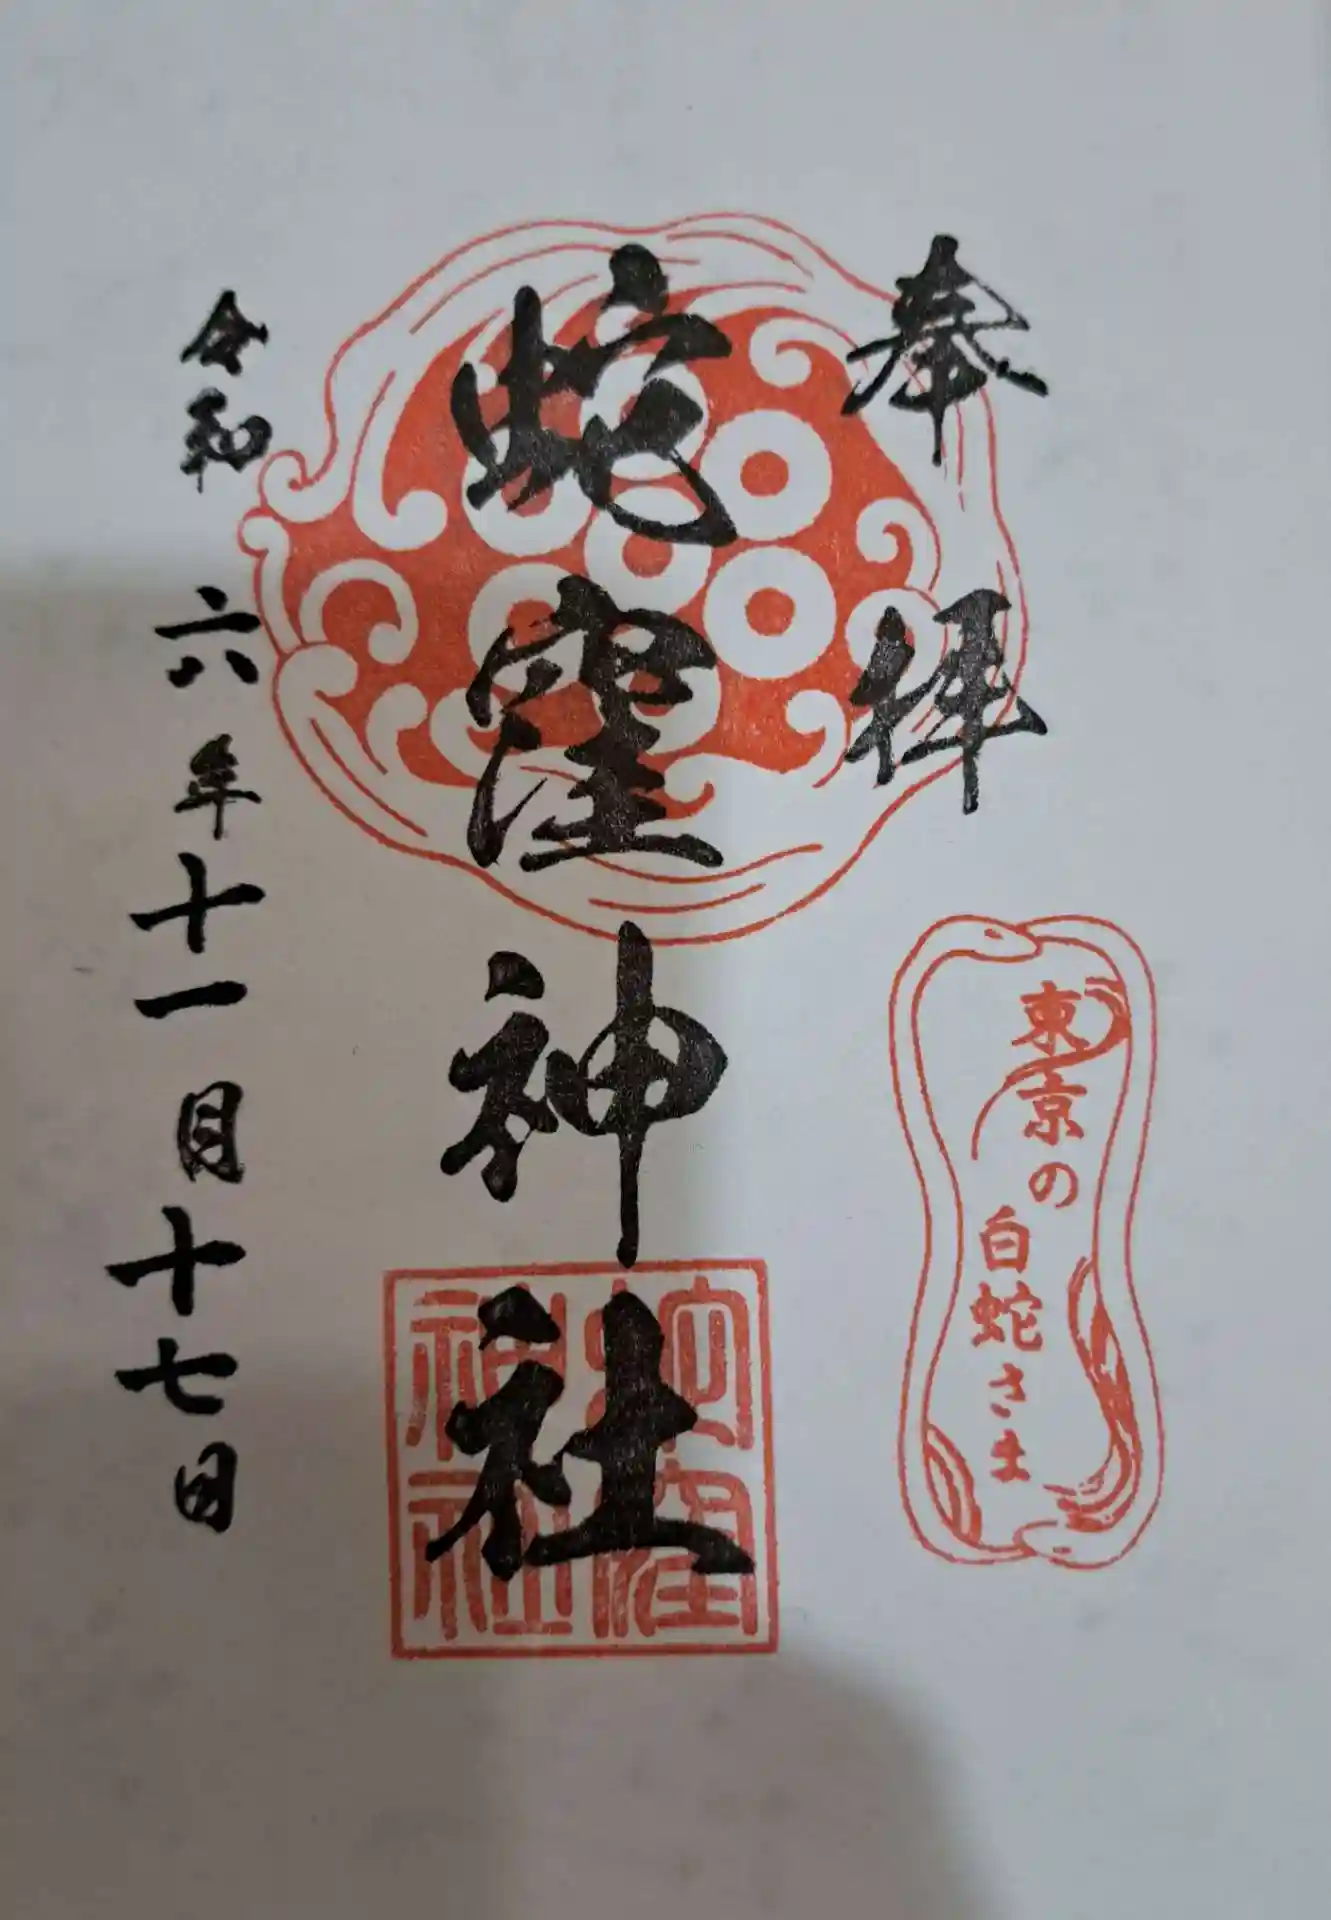 奉拝
東京の
白蛇さま
蛇窪神社
蛇窪
神社
令和六年十一月十七日